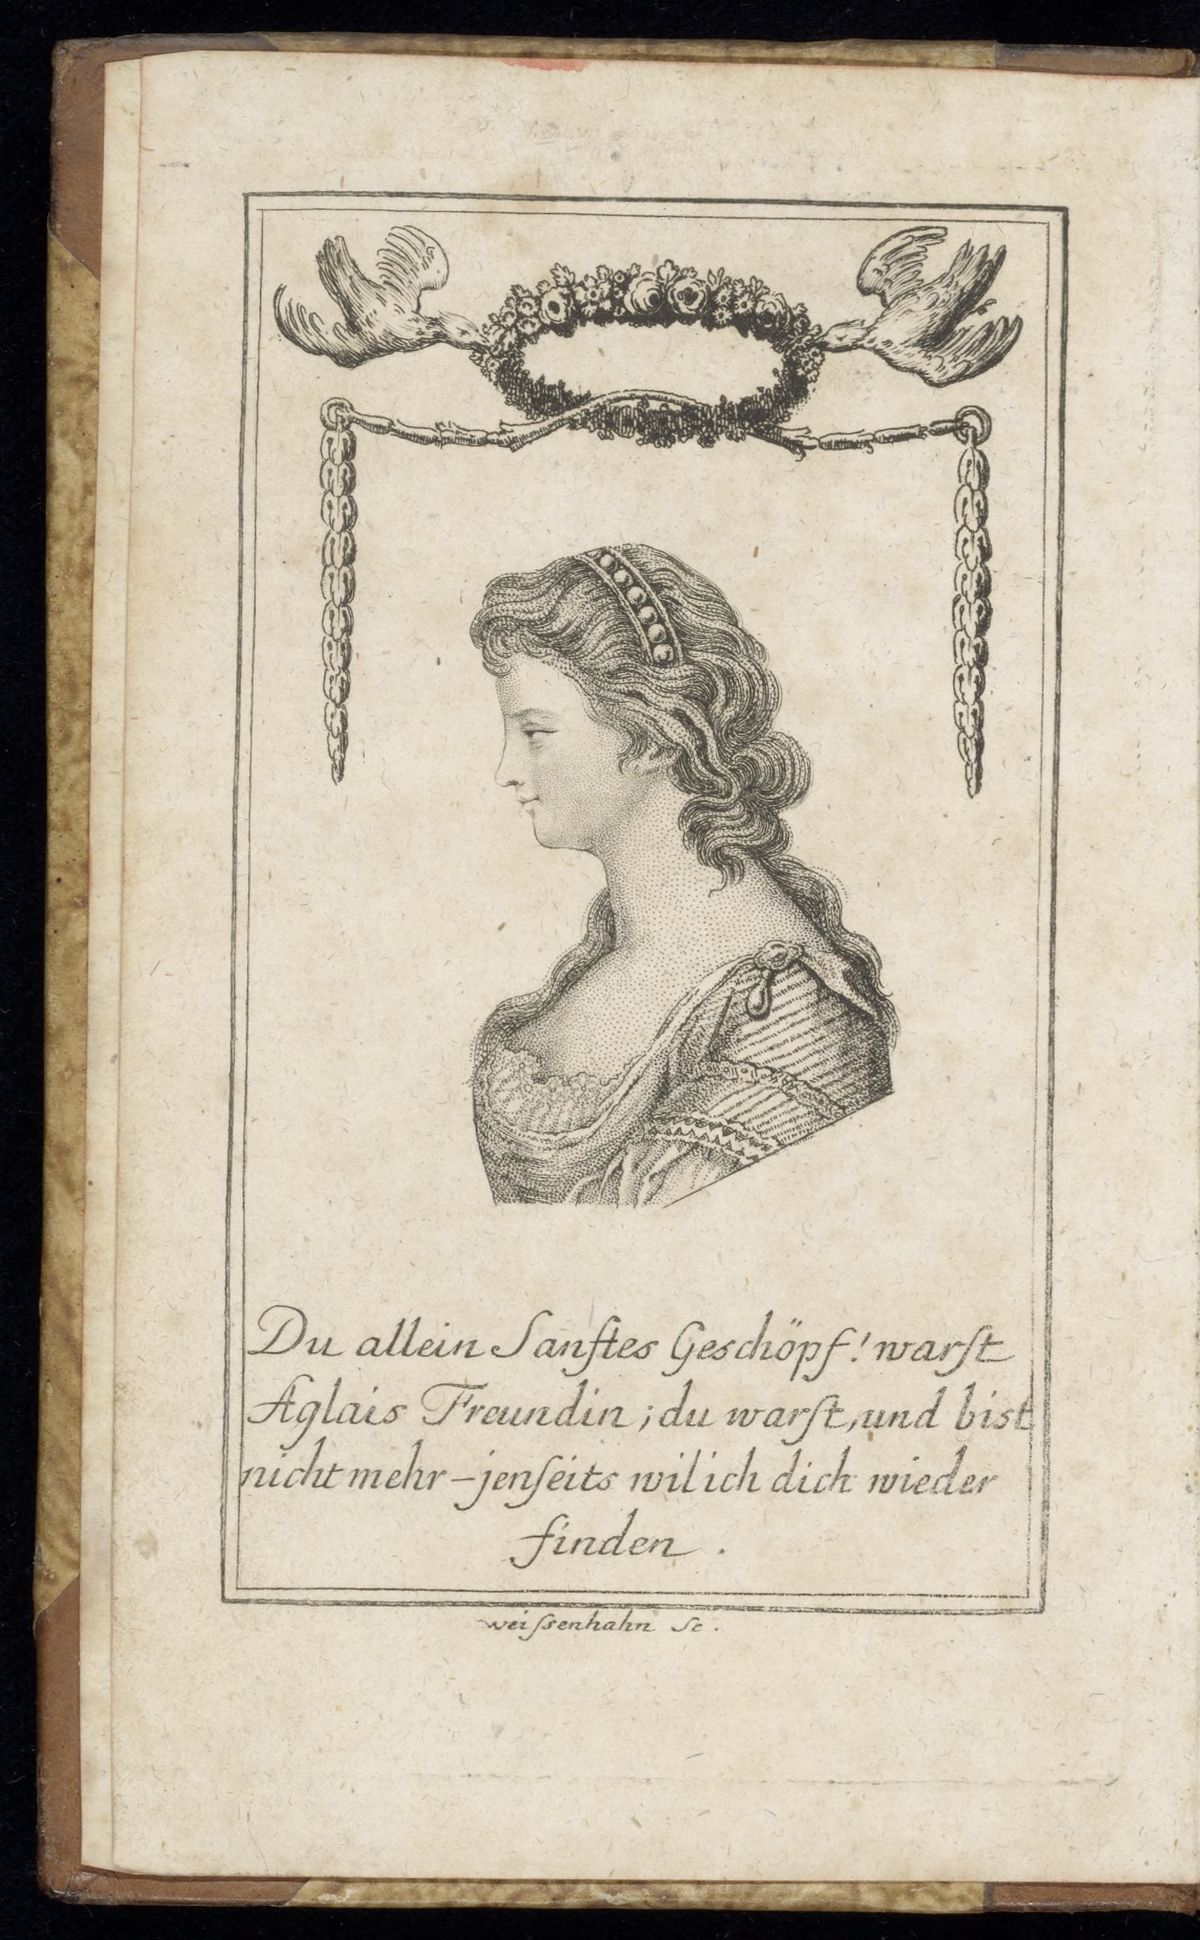 Du allein Sanftes Geschöpf! warst
Aglais Freundin; du warst, und bist
nicht mehr – jenseits wil ich dich wieder
finden.
weissenhahn Sc.